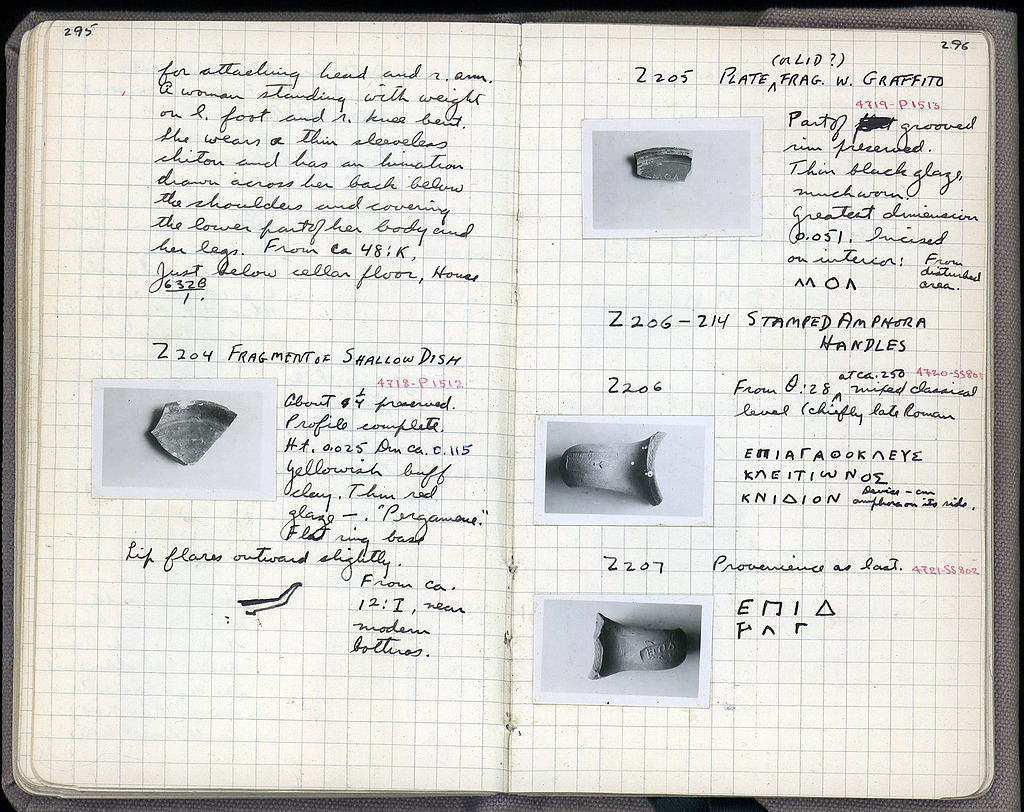 295
for attaching head and r. arm.
A woman standing with weight
on l. foot and r. knee bent.
She wears a thin sleeveless
chiton and has an himation
drawn across her back below
the shoulders and covering
the lower part of her body and
her legs. From ca 48:K,
Just below cellar floor, House
632B
1.
Z204 FRAGMENT OF SHALLOW DISH
4718-P1512
About 1/4 preserved.
Profile complete.
Ht. 0.025 Dm ca. 0.115
Yellowish buff
clay. Thin red
glaze —. "Pergamene."
Flat ring base
Lip flares outward slightly.
From ca.
12:I, near
modern
bothros.
296
(or LID?)
Z205 PLATE, FRAG. W. GRAFFITO
4719-P1513
Part of grooved
rim preserved.
Thin black glaze,
much worn.
Greatest dimension
0.051. Incised
on interior: From
disturbed
area.
ΛΛ Ο Λ
Z206-214 STAMPED AMPHORA
HANDLES
Z206
at ca. 250 4720-SS801
From Θ:28 mixed classical
level (chiefly late Roman
ΕΠΙΑΓΑΘΟΚΛΕΥΣ
ΚΛΕΙΤΙΩΝΟΣ
ΚΝΙΔΙΟΝ Device - an
amphora on its side.
Z207 Provenience as last. 4721-SS802
Ε Π Ι Δ